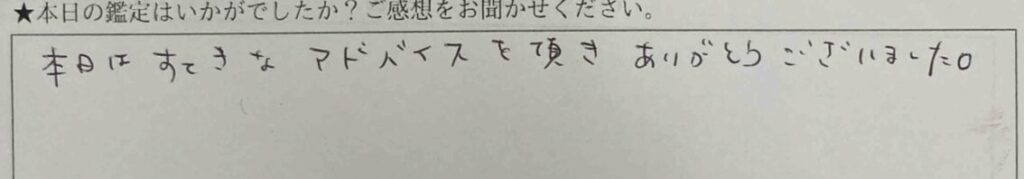 ★本日の鑑定はいかがでしたか？ご感想をお聞かせください。
本日は すてきな アドバイスを頂き ありがとうございました。